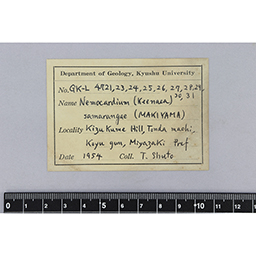 Department of Geology, Kyushu University
No. GK-L 4821, 23, 24, 25, 26, 27, 28, 29,
30, 31
Name Nemocardium (Keenaea)
samarangae (MAKIYAMA)
Locality Kizukume Hill, Tonda machi,
Koyu gun, Miyazaki Pref
Date 1954 Coll. T. Shuto
0 1 2 3 4 5 6 7 8 9 10 11 12